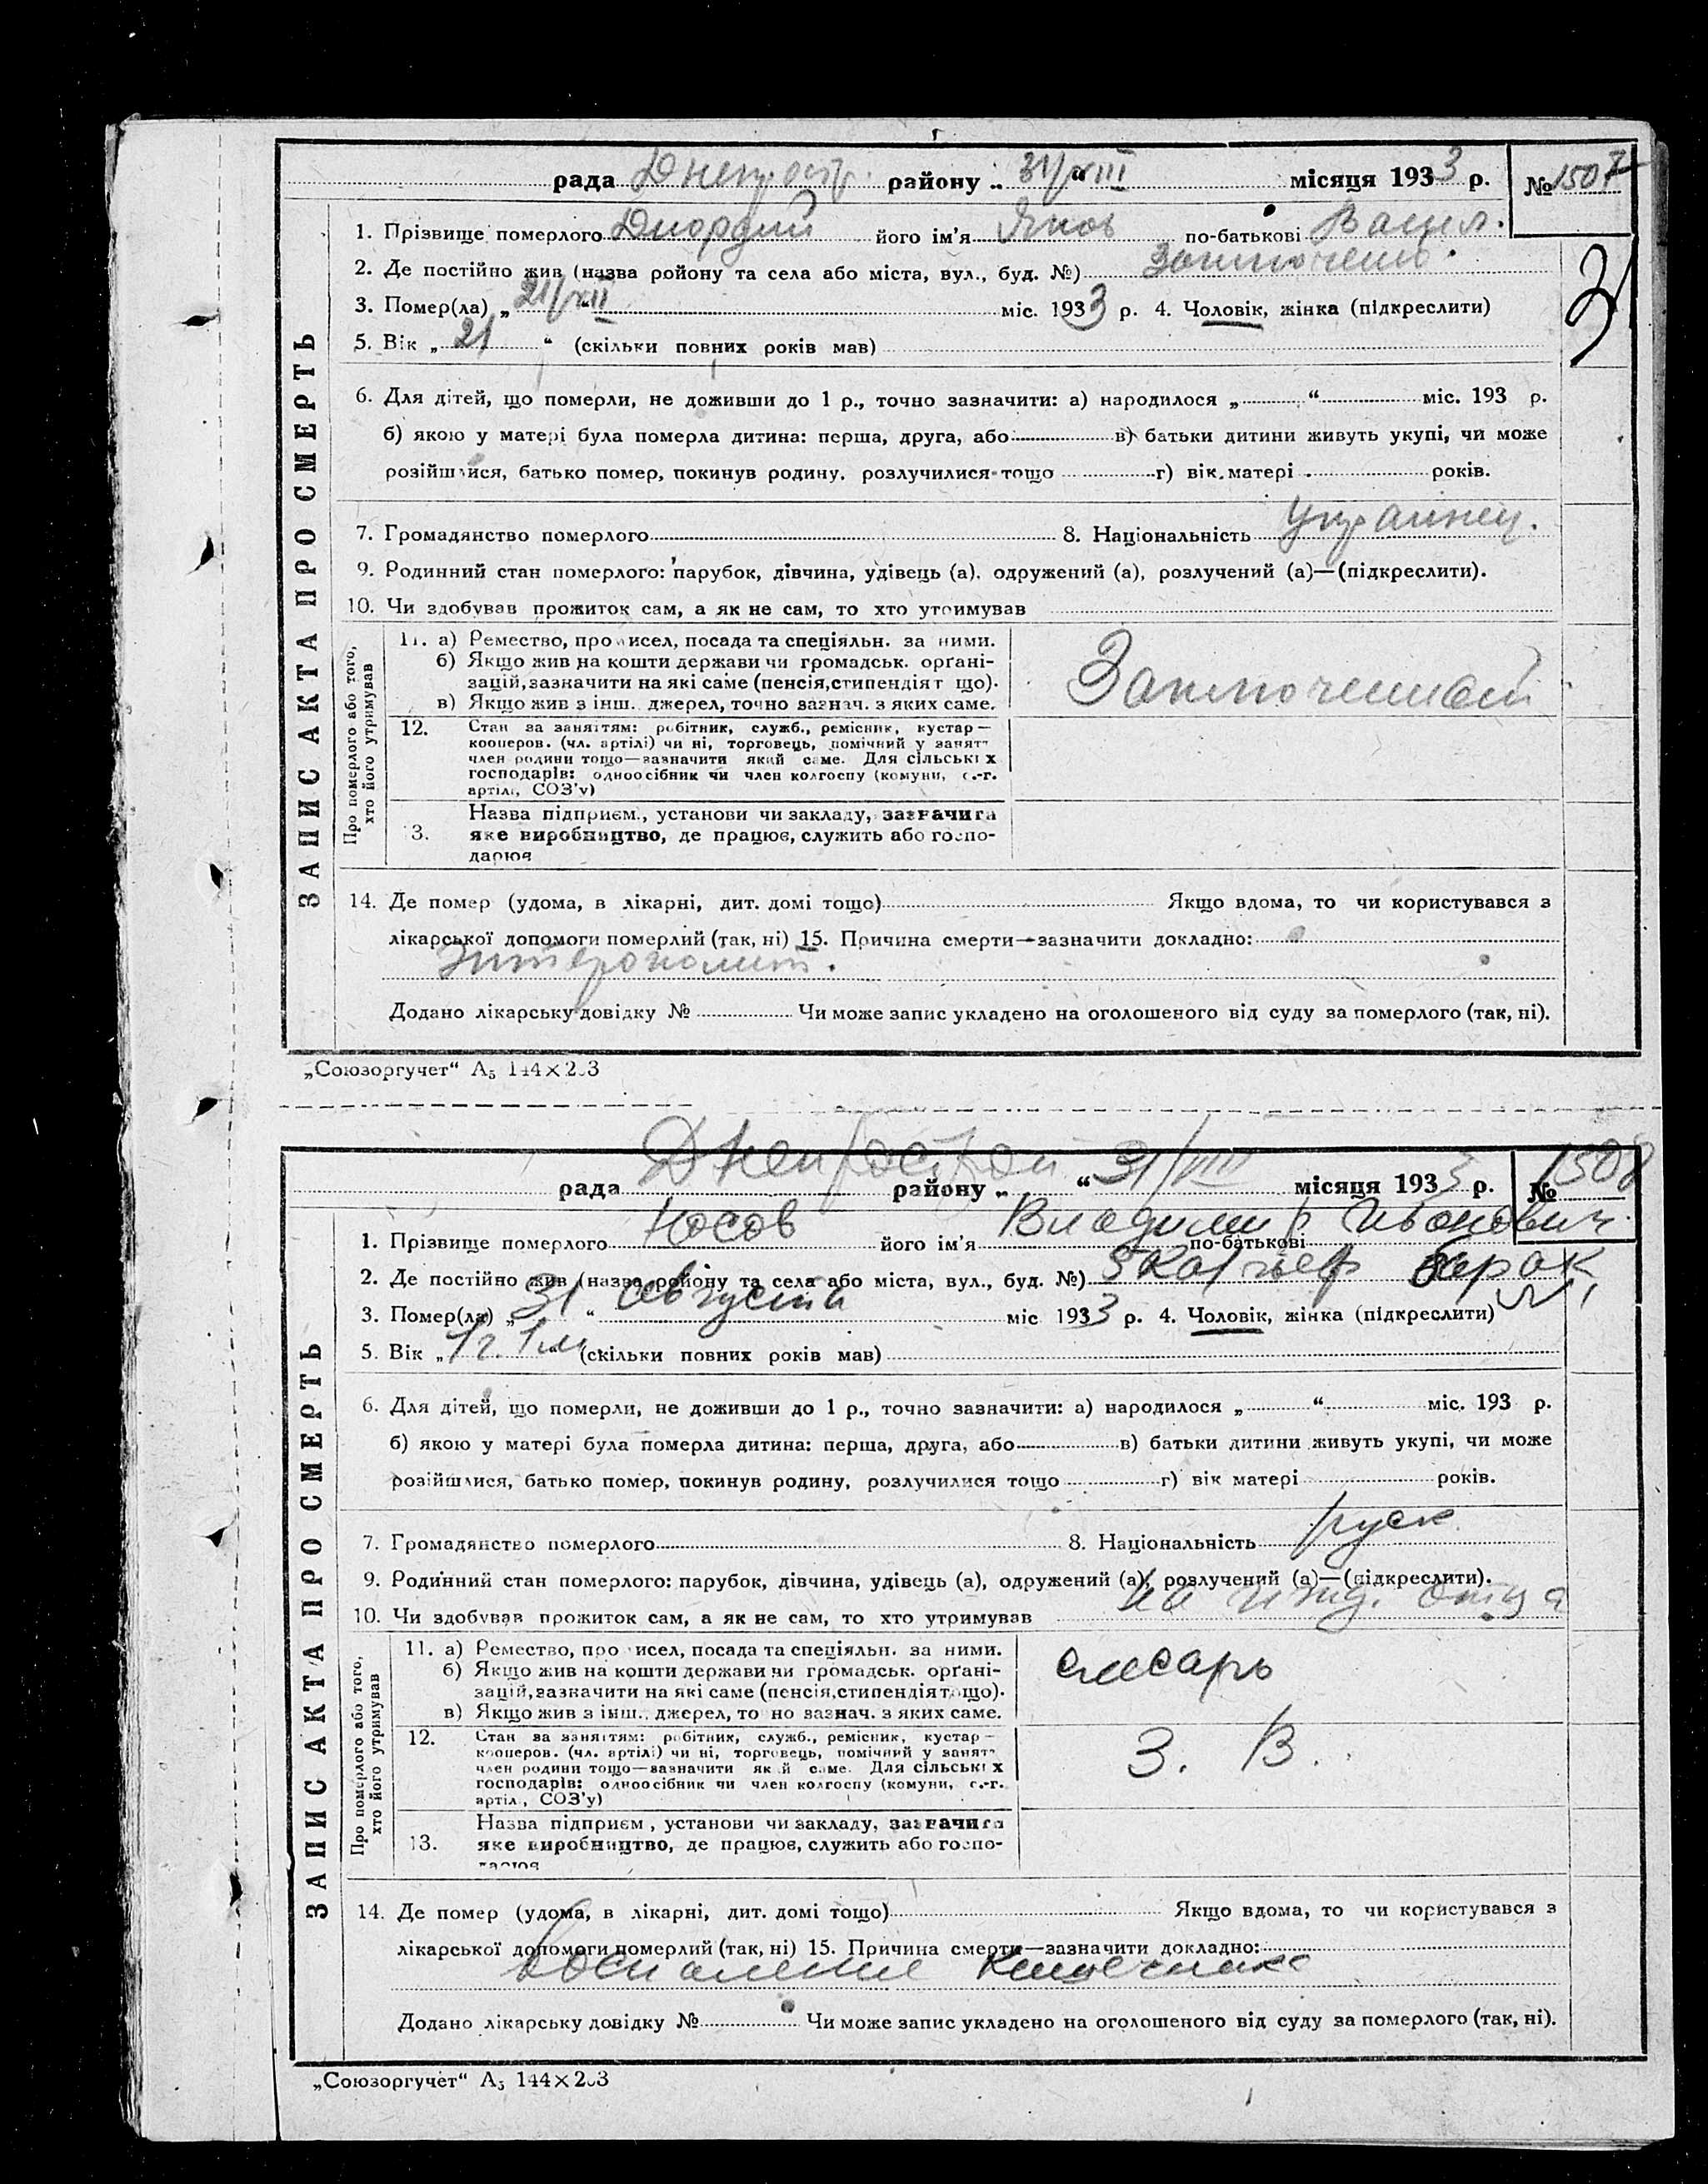 рада Днепростр. району „ 31/VIII “ місяця 1933 р. № 1507
1. Прізвище померлого його ім'я Яков по-батькові Васил.
2. Де постійно жив (назва ройону та села або міста, вул., буд. №)
3. Помер(ла) „ “ міс. 1933 р. 4. Чоловік, жінка (підкреслити)
5. Вік „ 21 “ (скільки повних років мав)
6. Для дітей, що померли, не доживши до 1 р., точно зазначити: а) народилося „ “ міс. 193 р.
б) якою у матері була померла дитина: перша, друга, або в) батьки дитини живуть укупі, чи може
розійшлися, батько помер, покинув родину, розлучилися тощо г) вік матері років.
7. Громадянство померлого 8. Національність Украинец.
9. Родинний стан померлого: парубок, дівчина, удівець (а), одружений (а), розлучений (а)—(підкреслити).
10. Чи здобував прожиток сам, а як не сам, то хто утримував
ЗАПИС АКТА ПРО СМЕРТЬ
Про померлого або того,
хто його утримував
11. а) Ремество, промисел, посада та спеціяльн. за ними.
б) Якщо жив на кошти держави чи громадськ. орґані-
зацій, зазначити на які саме (пенсія, стипендія т що).
в) Якщо жив з інш. джерел, точно зазнач. з яких саме.
Заключенный
12. Стан за заняттям: робітник, служб., ремісник, кустар—
кооперов. (чл. артілі) чи ні, торговець, помічний у занят
член родини тощо—зазначити який саме. Для сільських
господарів: одноосібник чи член колгоспу (комуни, с.-г.
артілі, СОЗ'у)
13. Назва підприєм., установи чи закладу, зазначити
яке виробництво, де працює, служить або госпо-
дарює
14. Де помер (удома, в лікарні, дит. домі тощо) Якщо вдома, то чи користувався з
лікарської допомоги померлий (так, ні) 15. Причина смерти—зазначити докладно:
Энтероколит.
Додано лікарську довідку № Чи може запис укладено на оголошеного від суду за померлого (так, ні).
„Союзоргучет“ А5 144×203
Днепрострой
рада району „ “ 31/VIII місяця 1933 р. № 1508
1. Прізвище померлого Носов його ім'я Владимир по-батькові Иванович.
2. Де постійно жив (назва ройону та села або міста, вул., буд. №) барак
3. Помер(ла) „ 31 “ августа міс 1933 р. 4. Чоловік, жінка (підкреслити)
5. Вік „ 1 г. 1 м “ (скільки повних років мав)
6. Для дітей, що померли, не доживши до 1 р., точно зазначити: а) народилося „ “ міс. 193 р.
б) якою у матері була померла дитина: перша, друга, або в) батьки дитини живуть укупі, чи може
розійшлися, батько помер, покинув родину, розлучилися тощо г) вік матері років.
7. Громадянство померлого 8. Національність руск
9. Родинний стан померлого: парубок, дівчина, удівець (а), одружений (а), розлучений (а)—(підкреслити).
10. Чи здобував прожиток сам, а як не сам, то хто утримував на ижд. отца
ЗАПИС АКТА ПРО СМЕРТЬ
Про померлого або того,
хто його утримував
11. а) Ремество, промисел, посада та спеціяльн. за ними.
б) Якщо жив на кошти держави чи громадськ. орґані-
зацій, зазначити на які саме (пенсія, стипендія тощо).
в) Якщо жив з інш. джерел, точно зазнач. з яких саме.
слесарь
12. Стан за заняттям: робітник, служб., ремісник, кустар—
кооперов. (чл. артілі) чи ні, торговець, помічний у занят
член родини тощо—зазначити який саме. Для сільських
господарів: одноосібник чи член колгоспу (комуни, с.-г.
артілі, СОЗ'у)
З. В.
13. Назва підприєм., установи чи закладу, зазначити
яке виробництво, де працює, служить або госпо-
дарює
14. Де помер (удома, в лікарні, дит. домі тощо) Якщо вдома, то чи користувався з
лікарської допомоги померлий (так, ні) 15. Причина смерти—зазначити докладно:
Воспаление кишечника
Додано лікарську довідку № Чи може запис укладено на оголошеного від суду за померлого (так, ні).
„Союзоргучет“ А5 144×203